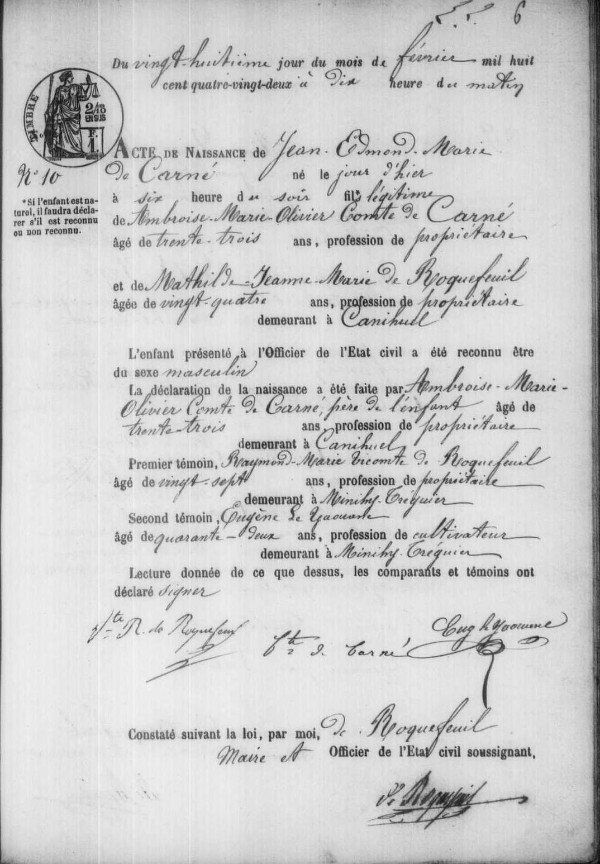 6
Du vingt-huitième jour du mois de février mil huit
cent quatre-vingt-deux à dix heure du matin
TIMBRE
2/10
EN SUS
F.
1.
N° 10
*Si l'enfant est na-
turel, il faudra décla-
rer s'il est reconnu
ou non reconnu.
ACTE DE NAISSANCE de Jean-Edmond-Marie
de Carné né le jour d'hier
à six heure du soir fils légitime
de Ambroise-Marie-Olivier Comte de Carné
âgé de trente-trois ans, profession de propriétaire
et de Mathilde-Jeanne-Marie de Roquefeuil
âgée de vingt-quatre ans, profession de propriétaire
demeurant à Canihuel
L'enfant présenté à l'Officier de l'Etat civil a été reconnu être
du sexe masculin
La déclaration de la naissance a été faite par Ambroise-Marie-
Olivier Comte de Carné, père de l'enfant âgé de
trente-trois ans, profession de propriétaire
demeurant à Canihuel
Premier témoin, Raymond-Marie Vicomte de Roquefeuil
âgé de vingt-sept ans, profession de propriétaire
demeurant à Minihy-Tréguier
Second témoin, Eugène Le Yaouanc
âgé de quarante-deux ans, profession de cultivateur
demeurant à Minihy-Tréguier
Lecture donnée de ce que dessus, les comparants et témoins ont
déclaré signer
Vte R. de Roquefeuil
Cte de Carné
Eug le Yaouanc
Constaté suivant la loi, par moi, de Roquefeuil
Maire et Officier de l'Etat civil soussigné.
de Roquefeuil